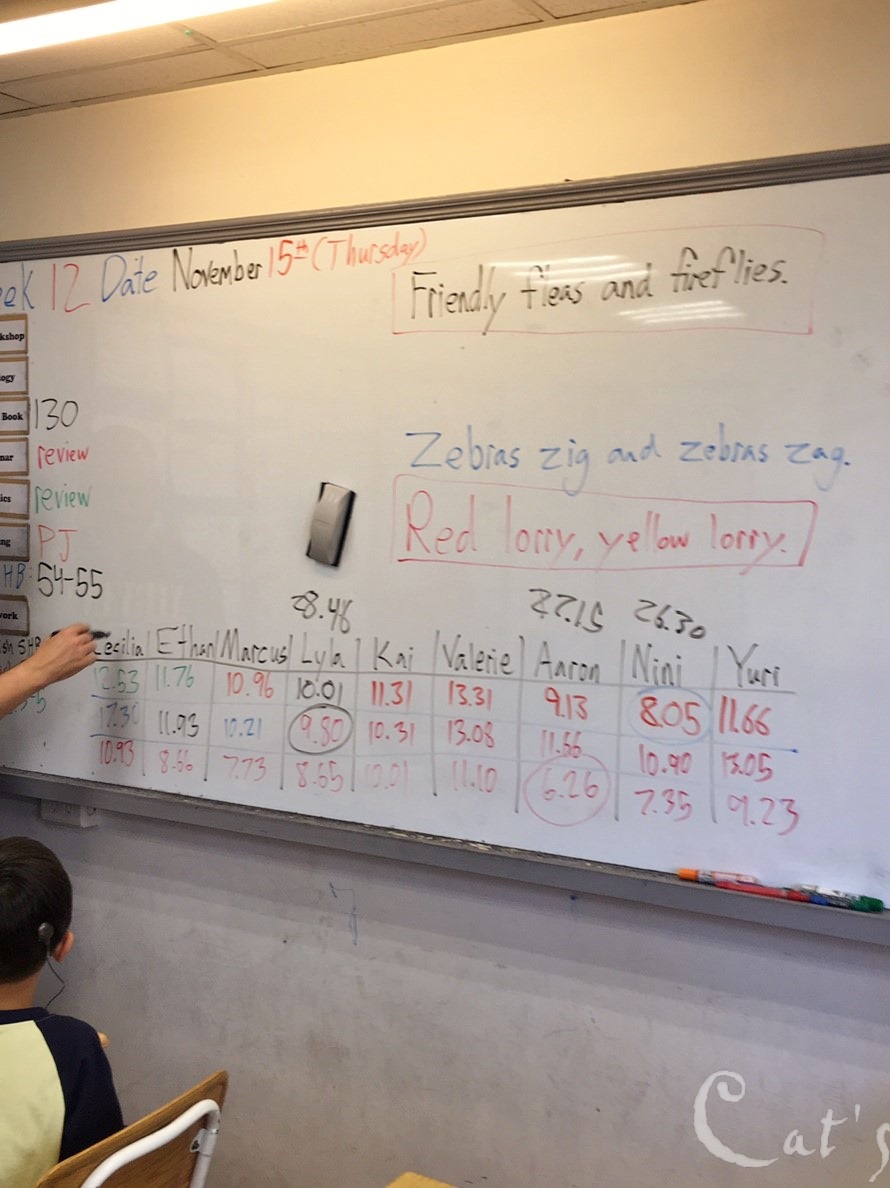 eek 12 Date November 15th (Thursday)
Friendly fleas and fireflies.
kshop
ogy
Book 130
nar review
ics review
ng PJ
HB: 54-55
work
Zebras zig and zebras zag.
Red lorry, yellow lorry.
28.46 26.30
Cecilia Ethan Marcus Lyla Kai Valerie Aaron Nini Yuri
12.53 11.76 10.96 10.01 11.31 13.31 9.13 8.05 11.66
11.93 10.21 9.80 10.31 13.08 11.66 10.90 13.05
10.93 8.66 7.73 8.65 10.01 11.10 6.26 7.35 9.23
Cat's